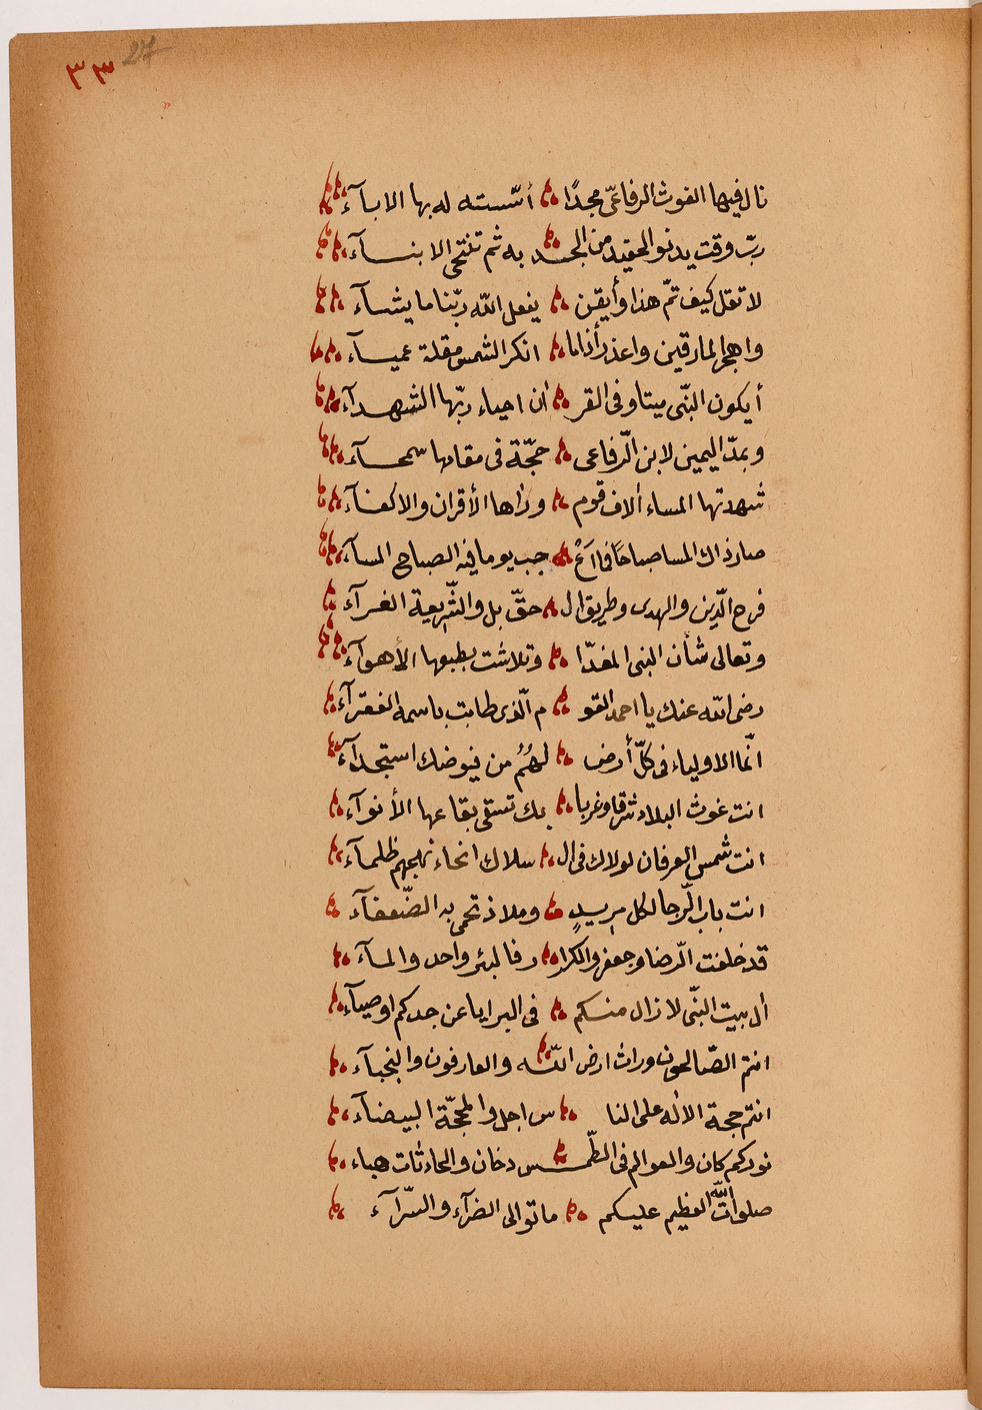 ٣٣ 27
نال فيها الغوث الرفاعىّ مجدًا أسّسته له بها الابآء
ربّ وقت يدنو الحقيد من الجـد به ثم تنتحى الابنـآء
لا تقل كيف تمّ هذا وأيقن يفعل اللّه ربّنا ما يشـآء
واهجر المارقين واعذر أناما انكر الشمس مقلة عميـآء
أيكون النبّى ميتا وفى القر ان احياء ربّها الشهـدآء
وبمدّ اليمين لابن الرّفاعى حجّة فى مقامها سمحـآء
شهدتها المساء ألاف قوم ورأها الأقران والاكفـآء
صار ذاك المسا صباحًا فااعْ جب يوما فيه الصباح المسآء
فرح الّدين والهدى وطريق ال حقّ بل والشّريعة الغـرآء
وتعالى شأن النبى المفدّا وتلاشت بطبعها الأهوآء
رضى اللّه عنك يا احمد القو م الّذى طابت باسمه الفقرآء
انّما الاولياء فى كلّ أرض لهُمُ من فيوضك استجدآء
انت غوث البلاد شرقا وغربا بك تستقى بقاعها الأنوآء
انت شمس العرفان لولاك فى ال سلاك انحاء نهجهم ظلمآء
انت باب الرّجا لكل مريدٍ وملاذ تحمى به الضّعفآء
قد خلفت الّرضا وجعفر والكرا ر فالبئر واحد والمآء
أل بيت النبّى لا زال منـكم فى البرايا عن جدكم اوصيآء
انتم الصّالحون وراث ارض اللّـه والعارفون والنجبآء
انتم حجة الاله على النا س اجل والمحجّة البيضآء
نوركم كان والعوالم فى الطّمـس دخان والحادثات هباء
صلوات اللّه العظيم عليـكم ما توالى الضرآء والسّرآء